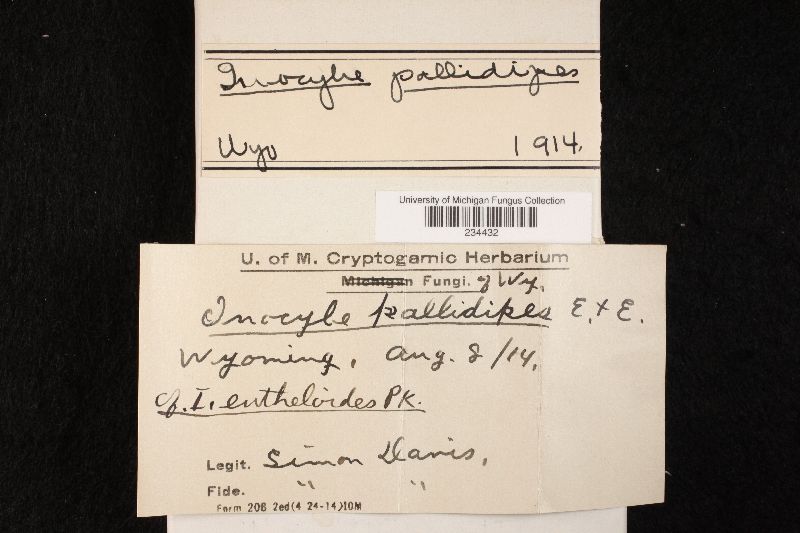 Inocybe pallidipes
Wyo 1914.
University of Michigan Fungus Collection
234432
U. of M. Cryptogamic Herbarium
Michigan Fungi. of Wy.
Inocybe pallidipes E. & E.
Wyoming, Aug. 8/14.
cf. I. entheloides Pk.
Legit. Simon Davis.
Fide. " "
Form 206 2ed(4 24-14)10M